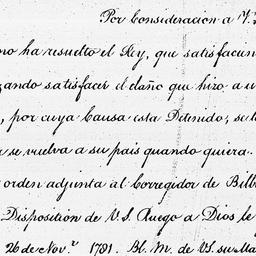 Por consideracion a V.
ha resuelto el Rey, que satisfacien
satisfacer el daño que hizo a u
, por cuya Causa esta Detenido, se le
se vuelva a su pais quando quiera.
orden adjunta al Corregidor de Bilb
Disposición de V.S. Ruego a Dios le g
26 de Nov.ʳ 1781. Bl. M. de VS. su Ma